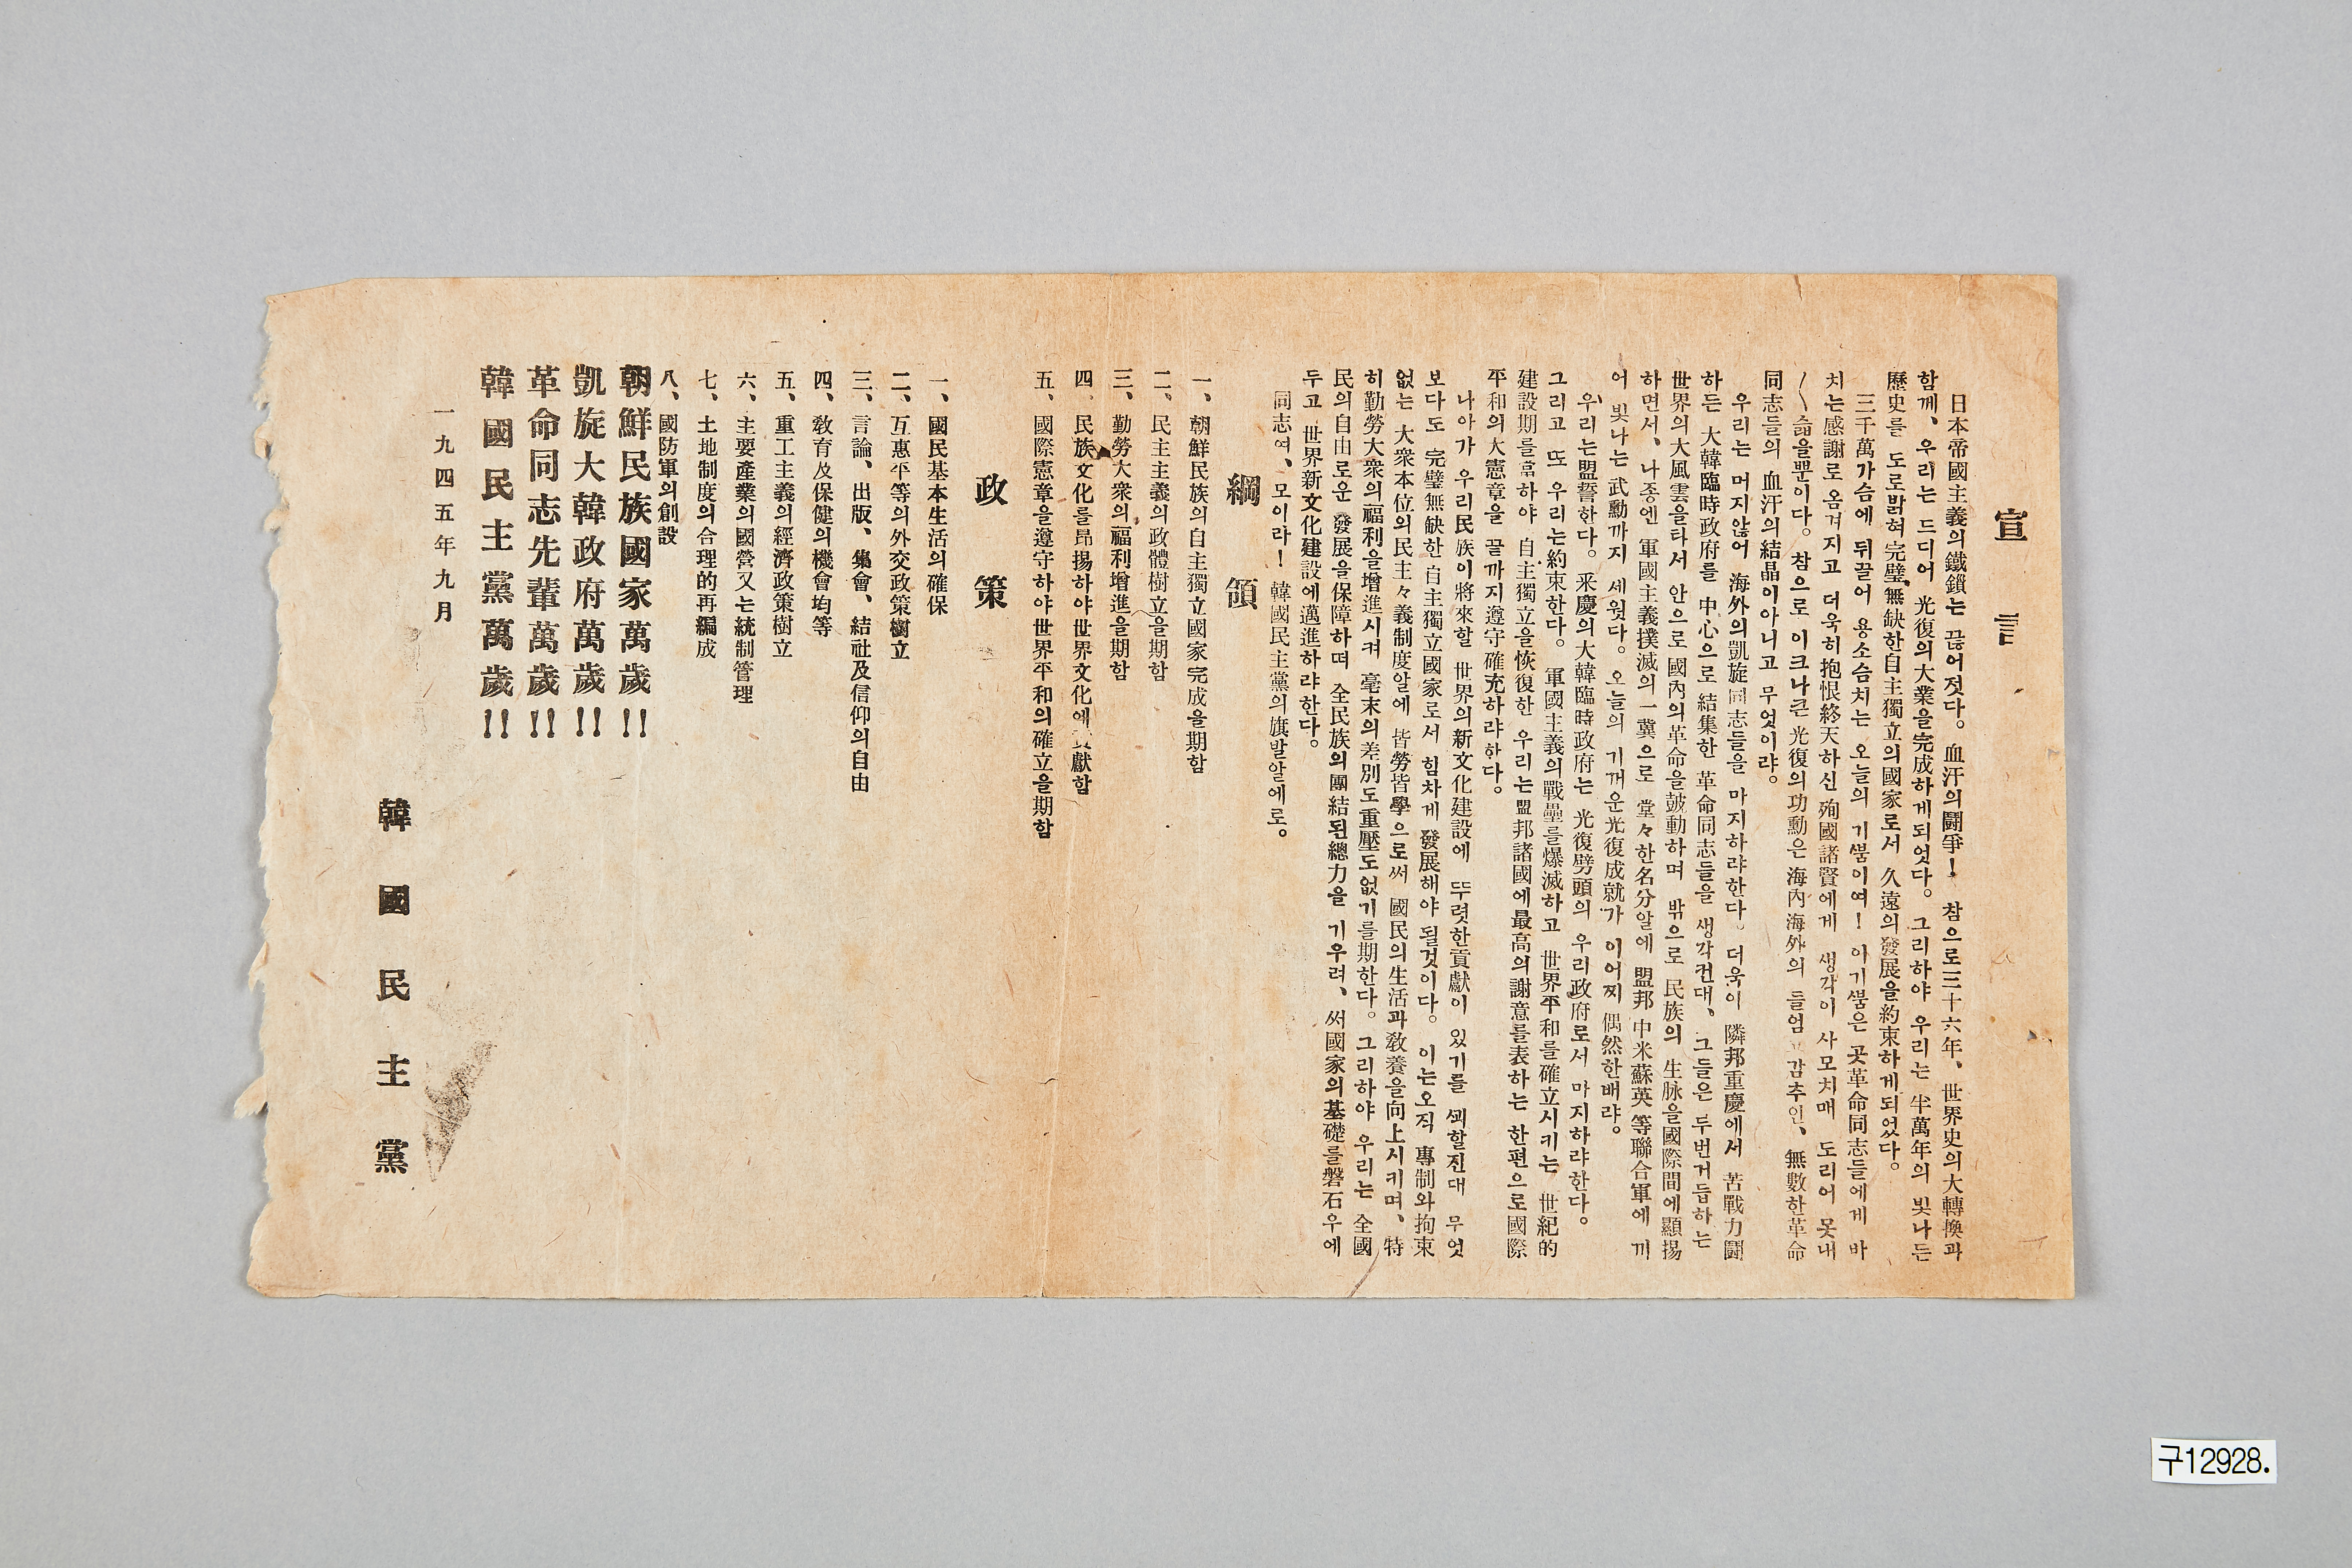 宣言
日本帝國主義의鐵鎖는 끊어젓다。血汗의鬪爭! 참으로三十六年、世界史의大轉換과
함께、우리는 드디어 光復의大業을完成하게되엇다。그리하야 우리는 半萬年의 빛나든
歷史를 도로밝혀 完璧無缺한自主獨立의國家로서 久遠의發展을約束하게되엇다。
三千萬가슴에 뒤끌어 용소슴치는 오늘의 기쁨이여! 이기쁨은 곳革命同志들에게 바
치는感謝로 옴겨지고 더욱히抱恨終天하신 殉國諸賢에게 생각이 사모치매 도리어 못내
슯을뿐이다。참으로 이크나큰 光復의功勳은 海內海外의 들엄 감추인、無數한革命
同志들의 血汗의結晶이아니고 무엇이랴。
우리는 머지않어 海外의凱旋同志들을 마지하랴한다。더욱이 隣邦重慶에서 苦戰力鬪
하든 大韓臨時政府를 中心으로 結集한 革命同志들을 생각건대、그들은 두번거듭하는
世界의大風雲을타서 안으로國內의革命을鼓動하며 밖으로 民族의 生脉을國際間에顯揚
하면서、나종엔 軍國主義撲滅의一翼으로 堂々한名分알에 盟邦 中米蘇英等聯合軍에 끼
어 빛나는 武勳까지 세웟다。오늘의 기꺼운光復成就가 이어찌 偶然한배랴。
우리는盟誓한다。釆慶의大韓臨時政府는 光復劈頭의 우리政府로서 마지하랴한다。
그리고 또 우리는約束한다。軍國主義의戰壘를爆滅하고 世界平和를確立시키는 世紀的
建設期를當하야 自主獨立을恢復한 우리는盟邦諸國에最高의謝意를表하는 한편으로國際
平和의大憲章을 끝까지遵守確充하랴한다。
나아가 우리民族이將來할 世界의新文化建設에 뚜렷한貢獻이 있기를 꾀할진대 무엇
보다도 完璧無缺한 自主獨立國家로서 힘차게 發展해야 될것이다。이는오직 專制와拘束
없는 大衆本位의民主々義制度알에 皆勞皆學으로써 國民의生活과敎養을向上시키며、特
히勤勞大衆의福利을增進시켜 毫末의差別도重壓도없기를期한다。그리하야 우리는 全國
民의自由로운 發展을保障하며 全民族의團結된總力을 기우려、써國家의基礎를磐石우에
두고 世界新文化建設에邁進하랴한다。
同志여、모이라! 韓國民主黨의旗발알에로。
綱領
一、朝鮮民族의自主獨立國家完成을期함
二、民主主義의政體樹立을期함
三、勤勞大衆의福利增進을期함
四、民族文化를昻揚하야世界文化에貢獻함
五、國際憲章을遵守하야世界平和의確立을期함
政策
一、國民基本生活의確保
二、互惠平等의外交政策樹立
三、言論、出版、集會、結社及信仰의自由
四、敎育及保健의機會均等
五、重工主義의經濟政策樹立
六、主要產業의國營又는統制管理
七、土地制度의合理的再編成
八、國防軍의創設
朝鮮民族國家萬歲!!
凱旋大韓政府萬歲!!
革命同志先輩萬歲!!
韓國民主黨萬歲!!
一九四五年九月
韓國民主黨
구12928.